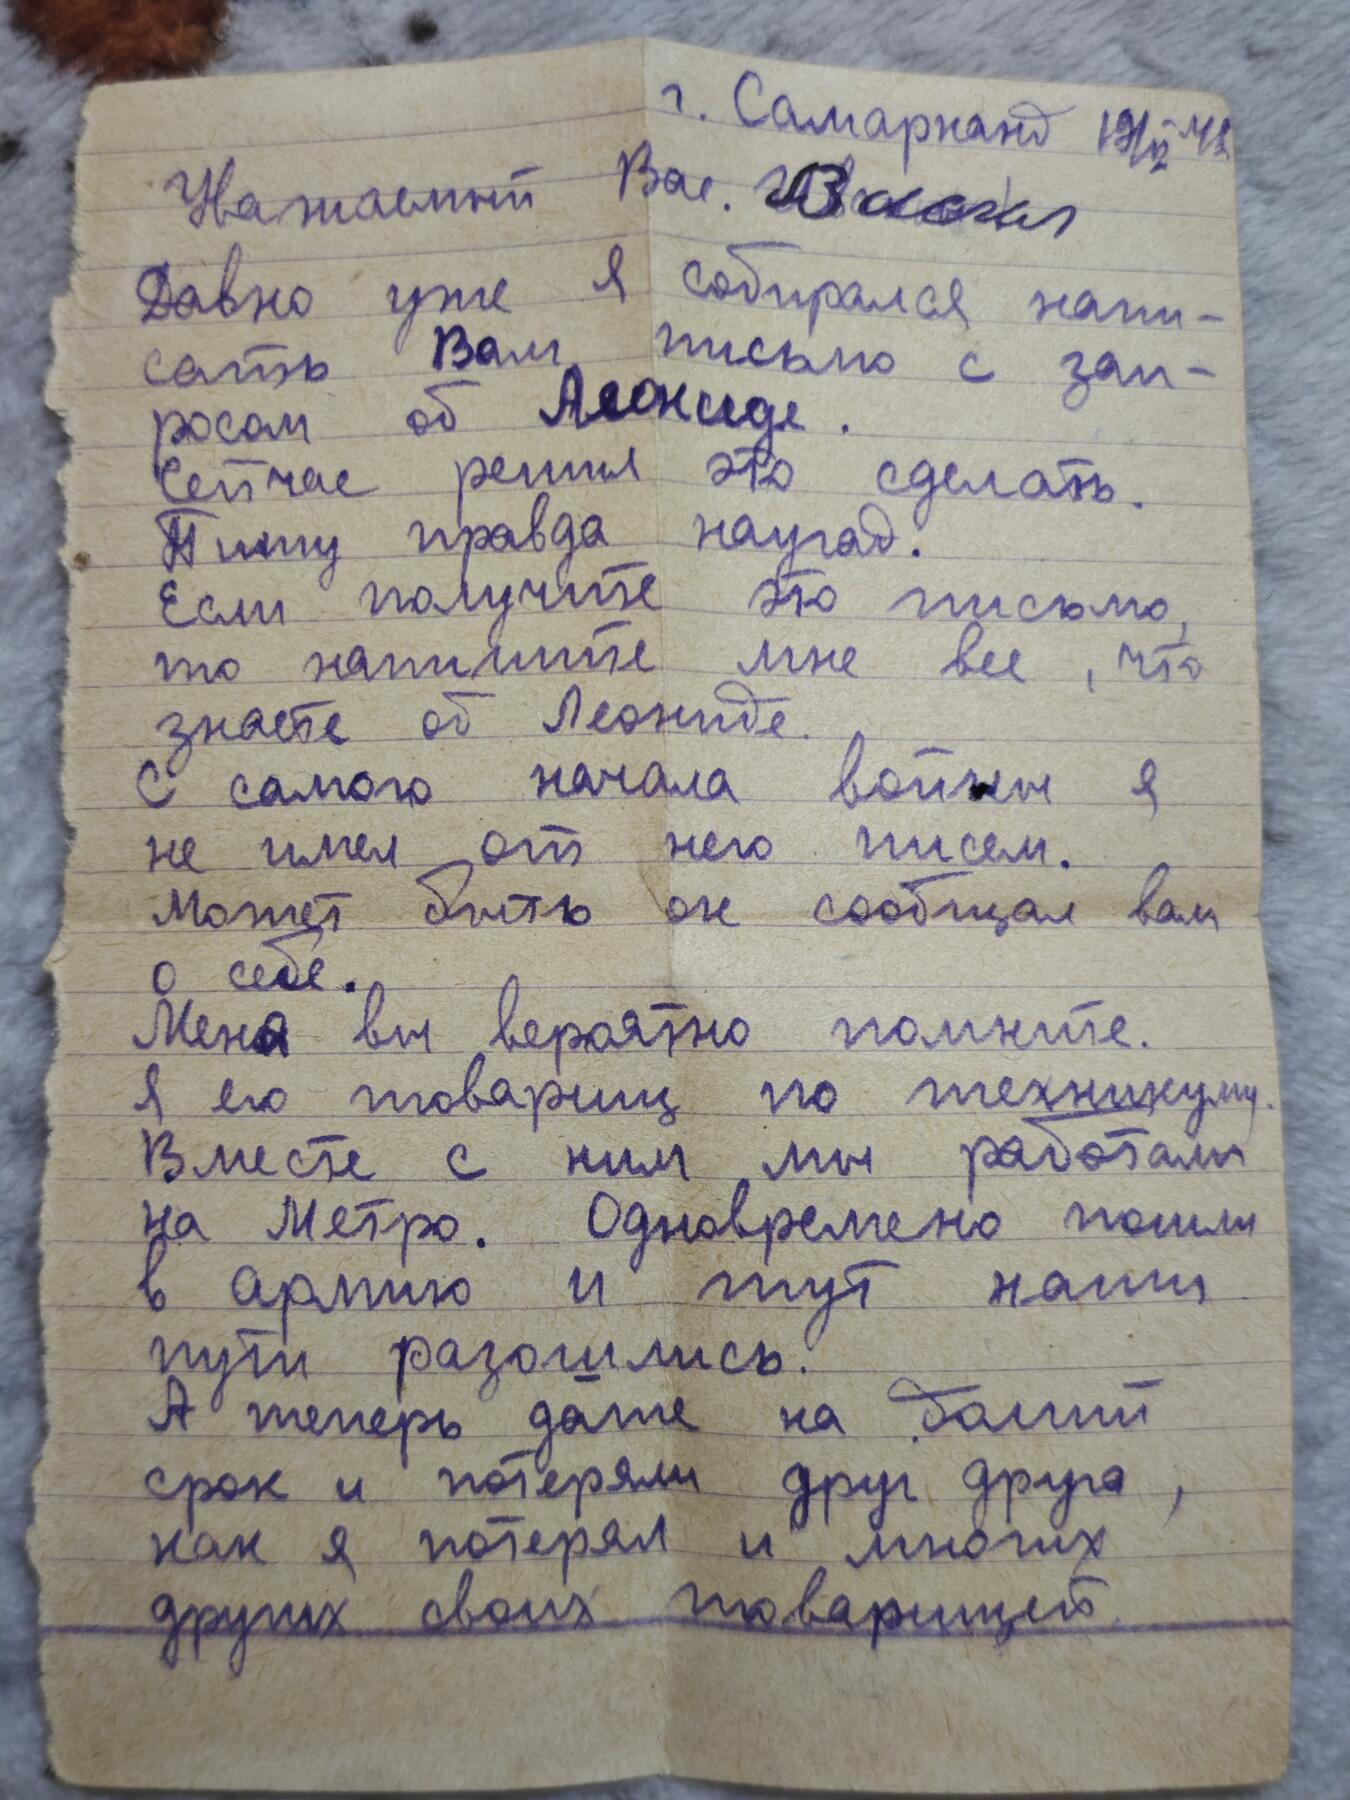 г. Самарканд
Уважаемый Вас.
Давно уже я собирался напи-
сать Вам письмо с зап-
росом об Леониде.
Сейчас решил это сделать.
Пишу правда наугад.
Если получите это письмо,
то напишите мне все, что
знаете об Леониде.
С самого начала войны я
не имел от него писем.
Может быть он сообщал вам
о себе.
Меня вы вероятно помните.
Я его товарищ по техникуму.
Вместе с ним мы работали
на Метро. Одновремено пошли
в армию и тут наши
пути разошлись.
А теперь даже на
срок и потеряли друг друга,
как я потерял и многих
других своих товарищей.